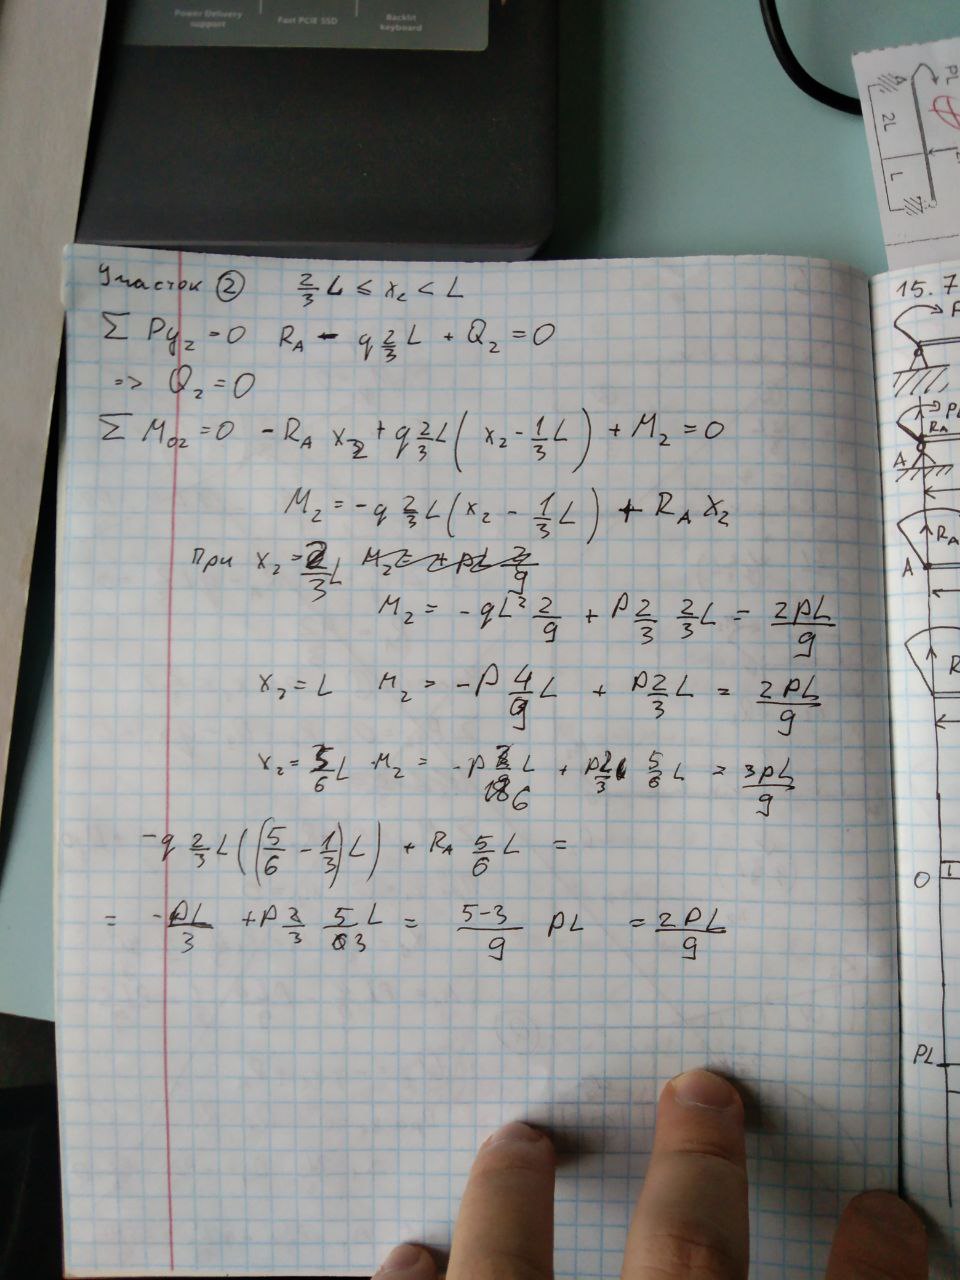 Power Delivery support
Fast PCIE SSD
Backlit keyboard
PL
A
2L
L
Участок ② 2/3 L ≤ x₂ < L
∑ Py₂ = 0 R_A - q 2/3 L + Q₂ = 0
=> Q₂ = 0
∑ M₀₂ = 0 - R_A x₂ + q 2/3 L (x₂ - 1/3 L) + M₂ = 0
M₂ = - q 2/3 L (x₂ - 1/3 L) + R_A x₂
При x₂ = 2/3 L
M₂ = - qL² 2/9 + P 2/3 2/3 L = 2PL/9
x₂ = L M₂ = - P 4/9 L + P 2/3 L = 2PL/9
x₂ = 5/6 L M₂ = - P L + P 2/3 5/6 L = 3PL/9
- q 2/3 L ((5/6 - 1/3) L) + R_A 5/6 L =
= - PL/3 + P 2/3 5/3 L = 5-3/9 PL = 2PL/9
15.7
PL
R_A
A
R_A
A
R
O
PL